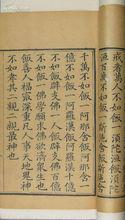 戒者萬人不如飯一須陀洹飯須陀
洹百萬不如飯一斯陀含飯斯陀含
千萬不如飯一阿那含飯阿那含一
億不如飯一阿羅漢飯阿羅漢十億
不如飯辟支佛一人飯辟支佛百億
不如飯一佛學願求佛欲濟衆生也
飯善人福最深重凡人事天地鬼神
不如孝其二親二親最神也